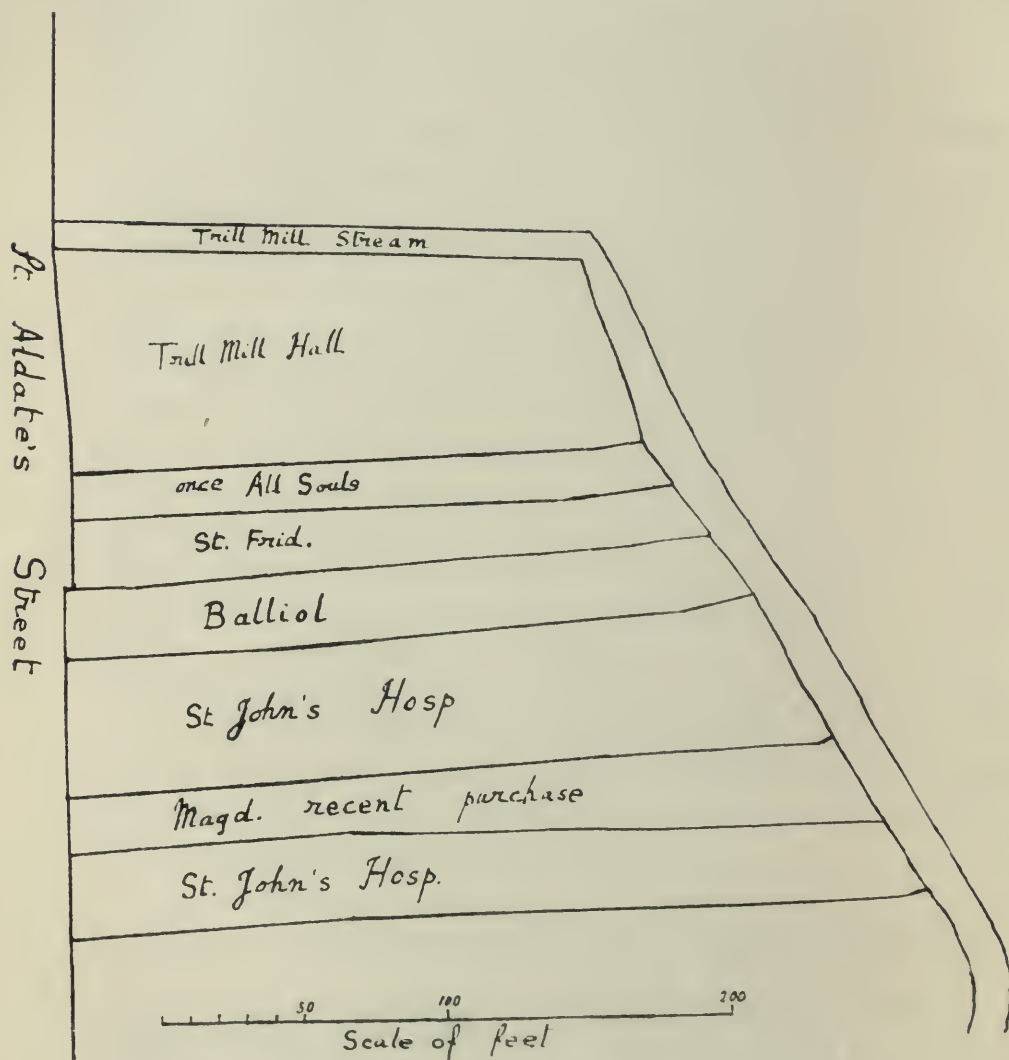 St. Aldate's Street
Trill Mill Stream
Trill Mill Hall
once All Souls
St. Frid.
Balliol
St John's Hosp
Magd. recent purchase
St. John's Hosp.
50 100 200
Scale of feet